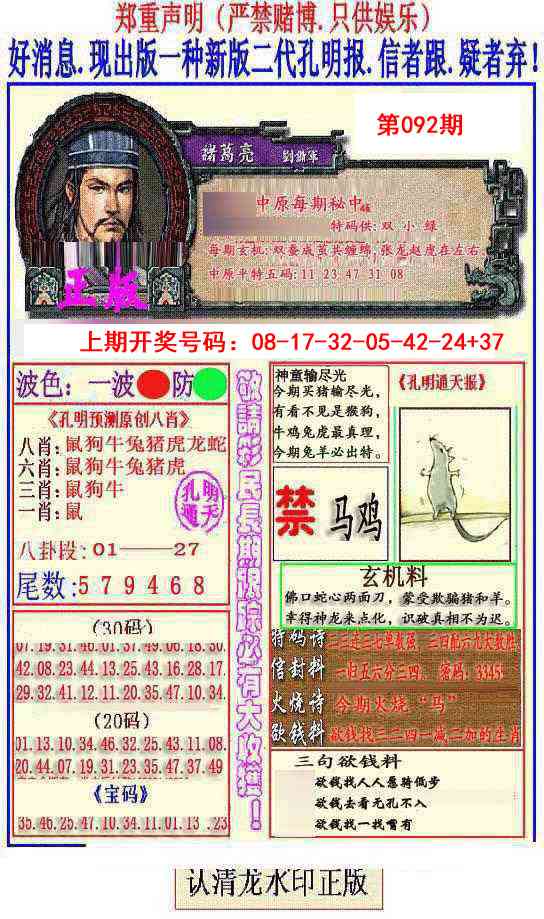 郑重声明（严禁赌博.只供娱乐）
好消息.现出版一种新版二代孔明报.信者跟.疑者弃！
第092期
諸葛亮
中原每期秘中
特码供：双 小 绿
每期玄机：双蚕成茧共缠绵，张龙赵虎在左右
中原平特五码：11 23 47 31 08
正版
上期开奖号码：08-17-32-05-42-24+37
波色：一波 防
《孔明预测原创八肖》
八肖：鼠狗牛兔猪虎龙蛇
六肖：鼠狗牛兔猪虎
三肖：鼠狗牛
一肖：鼠
孔明
通天
八卦段：01——27
尾数：579468
(30码)
07.19.31.46.01.37.49.06.18.30.
42.08.23.44.13.25.43.16.28.17.
29.32.41.12.11.20.35.47.10.34
(20码)
01.13.10.34.46.32.25.43.11.08.
20.44.07.19.31.23.35.47.37.49
《宝码》
35.46.25.47.10.34.11.01.13.23
敬請彩民長期跟踪必有大收獲！
神童输尽光
今期买猪输尽光，
有看不见是猴狗，
牛鸡兔虎最真理，
今期兔羊必出特。
《孔明通天报》
禁 马鸡
玄机料
佛口蛇心两面刀，蒙受欺骗猪和羊。
幸得神龙来点化，识破真相不为迟。
特码诗 二三连三七单数强 二四配六九大数胜
信封料 一归五六分三四. 密码：3345
火烧诗 今期火烧“马”
欲钱料 欲钱找二二四一减二加的生肖
三句欲钱料
欲钱找人人愚骑低步
欲钱去看无孔不入
欲钱找一找嘴有
认清龙水印正版